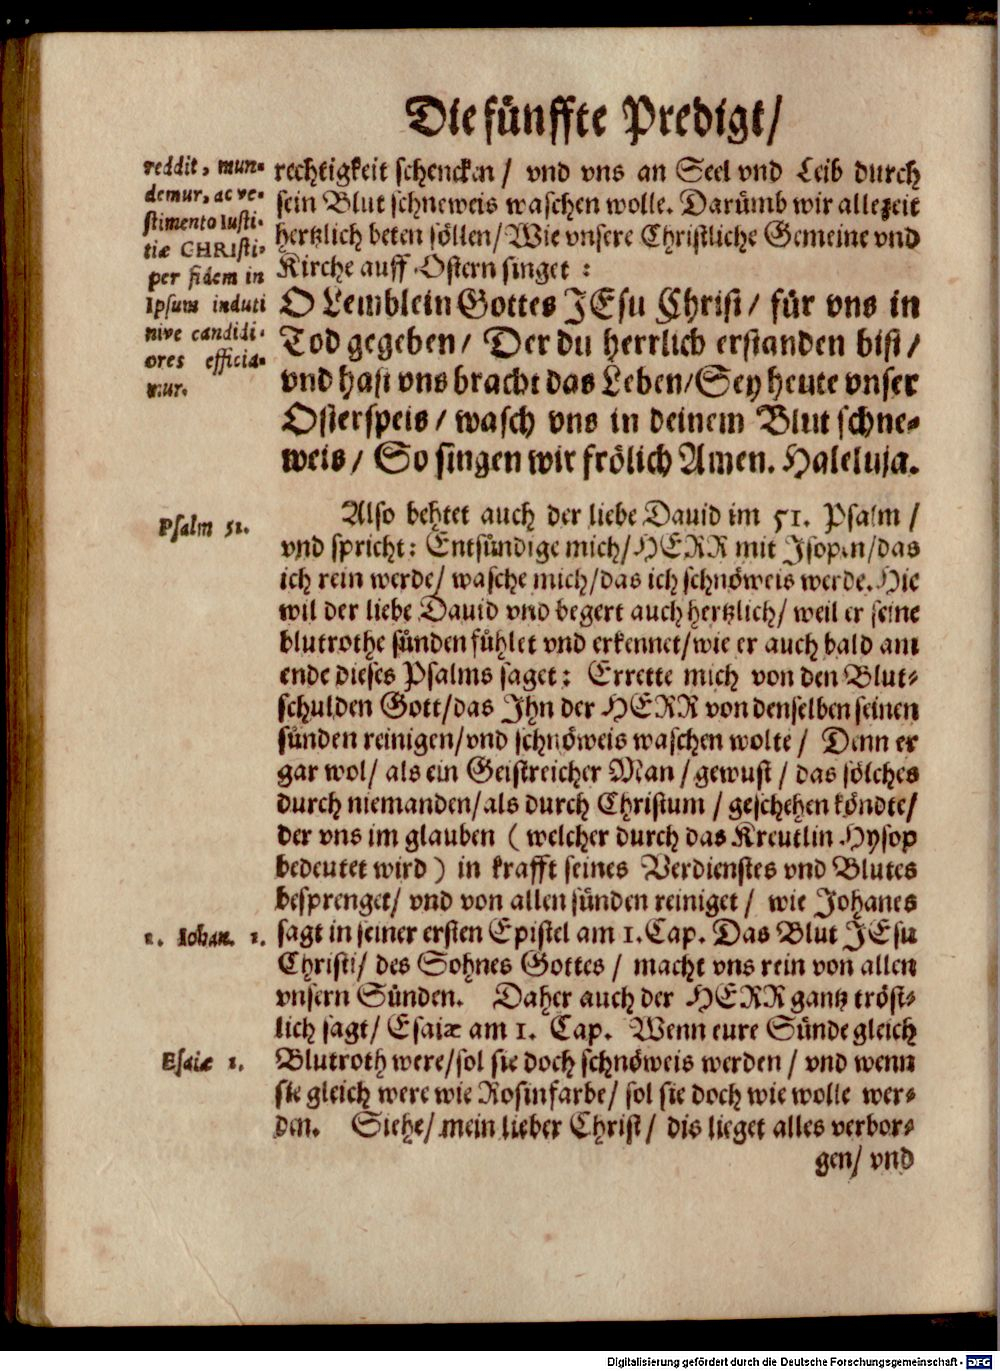 Die fünffte Predigt/
reddit, mun-
demur, ac ve-
stimento Iusti-
tiæ CHRIsti-
per fidem in
Ipsum induti
nive candidi-
ores efficia-
mur.
rechtigkeit schencken / vnd vns an Seel vnd Leib durch
sein Blut schneweis waschen wolle. Darümb wir allezeit
hertzlich beten söllen/ Wie vnsere Christliche Gemeine vnd
Kirche auff Ostern singet :
O Lemblein Gottes JEsu Christ/ für vns in
Tod gegeben/ Der du herrlich erstanden bist/
vnd hast vns bracht das Leben/ Sey heute vnser
Osterspeis/ wasch vns in deinem Blut schne-
weis/ So singen wir frölich Amen. Haleluja.
Psalm 51.
Also behtet auch der liebe Dauid im 51. Psalm /
vnd spricht: Entsündige mich/ HERR mit Isopen/ das
ich rein werde/ wasche mich/ das ich schnöweis werde. Hie
wil der liebe Dauid vnd begert auch hertzlich/ weil er seine
blutrothe sünden fühlet vnd erkennet/ wie er auch bald am
ende dieses Psalms saget: Errette mich von den Blut-
schulden Gott/ das Ihn der HERR von denselben seinen
sünden reinigen/ vnd schnöweis waschen wolte / Denn er
gar wol/ als ein Geistreicher Man / gewust / das sölches
durch niemanden/ als durch Christum / geschehen köndte/
der vns im glauben ( welcher durch das Kreutlin Hysop
bedeutet wird ) in krafft seines Verdienstes vnd Blutes
besprenget/ vnd von allen sünden reiniget / wie Johanes
1. Iohan. 1.
sagt in seiner ersten Epistel am 1. Cap. Das Blut JEsu
Christi/ des Sohnes Gottes / macht vns rein von allen
vnsern Sünden. Daher auch der HERR gantz tröst-
lich sagt/ Esaiæ am 1. Cap. Wenn eure Sünde gleich
Esaiæ 1.
Blutroth were/ sol sie doch schnöweis werden / vnd wenn
sie gleich were wie Rosinfarbe/ sol sie doch wie wolle wer-
den. Siehe/ mein lieber Christ/ dis lieget alles verbor-
gen/ vnd
Digitalisierung gefördert durch die Deutsche Forschungsgemeinschaft - DFG